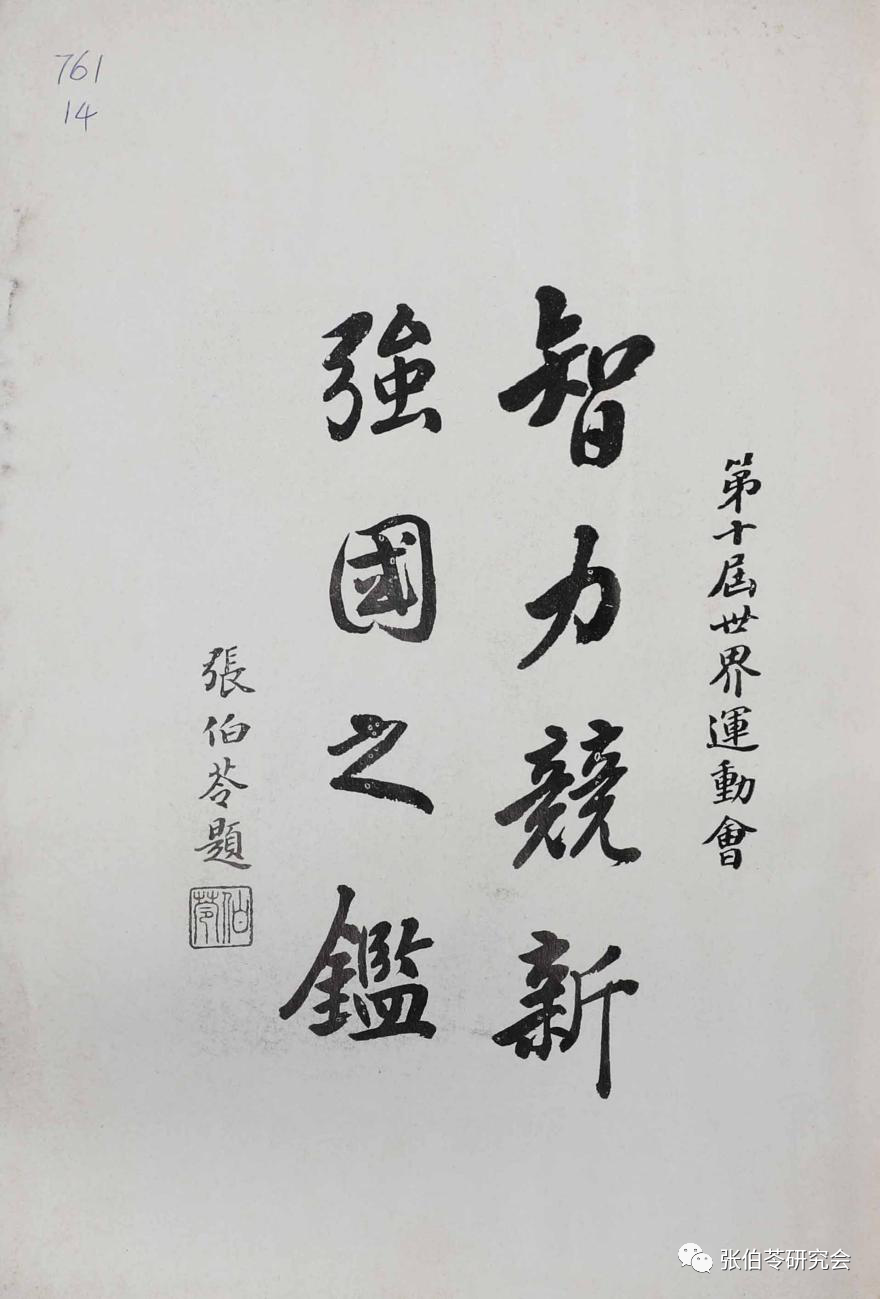 761
14
第十屆世界運動會
智力競新
強國之鑑
張伯苓題
伯苓
张伯苓研究会